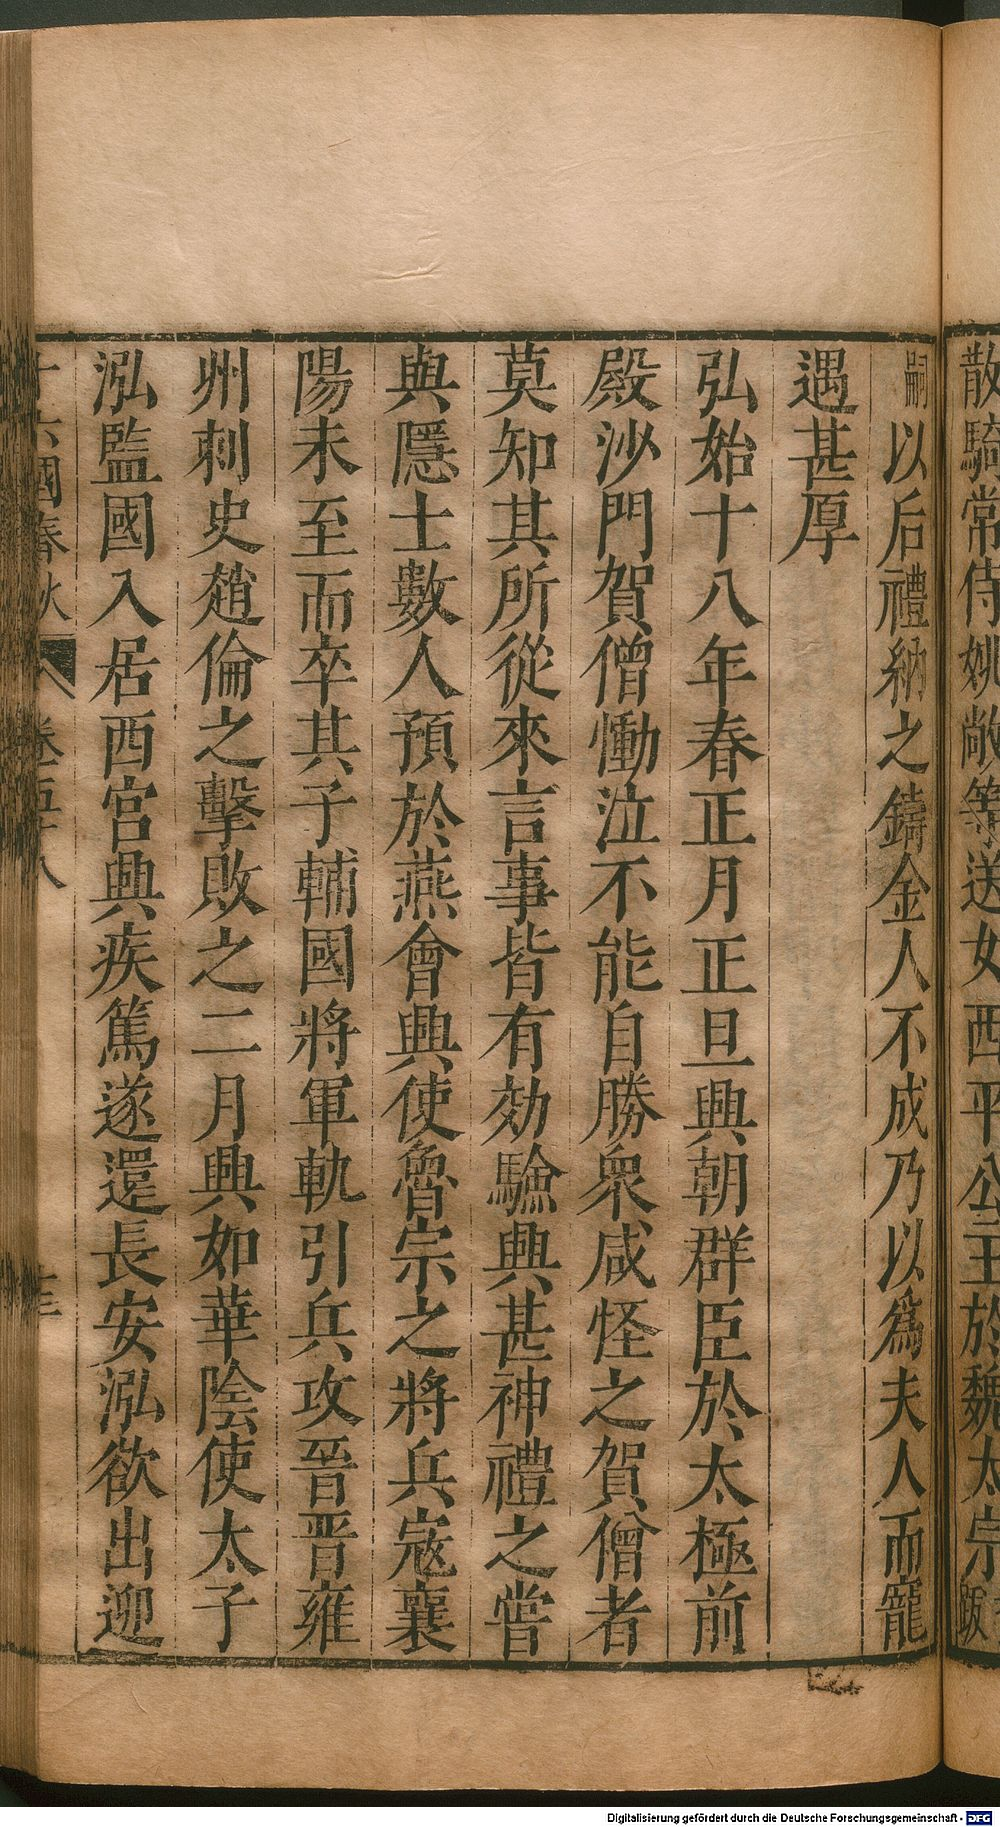 散騎常侍姚敞等送女西平公主於魏太宗
嗣以后禮納之鑄金人不成乃以爲夫人而寵
遇甚厚
弘始十八年春正月正旦興朝群臣於太極前
殿沙門賀僧慟泣不能自勝衆咸怪之賀僧者
莫知其所從來言事皆有効驗興甚神禮之嘗
與隱士數人預於燕會興使魯宗之將兵宼襄
陽未至而卒其子輔國將軍軌引兵攻晉晋雍
州刺史趙倫之擊敗之二月興如華陰使太子
泓監國入居西宮興疾篤遂還長安泓欲出迎
十六國春秋 卷五十八
Digitalisierung gefördert durch die Deutsche Forschungsgemeinschaft - DFG